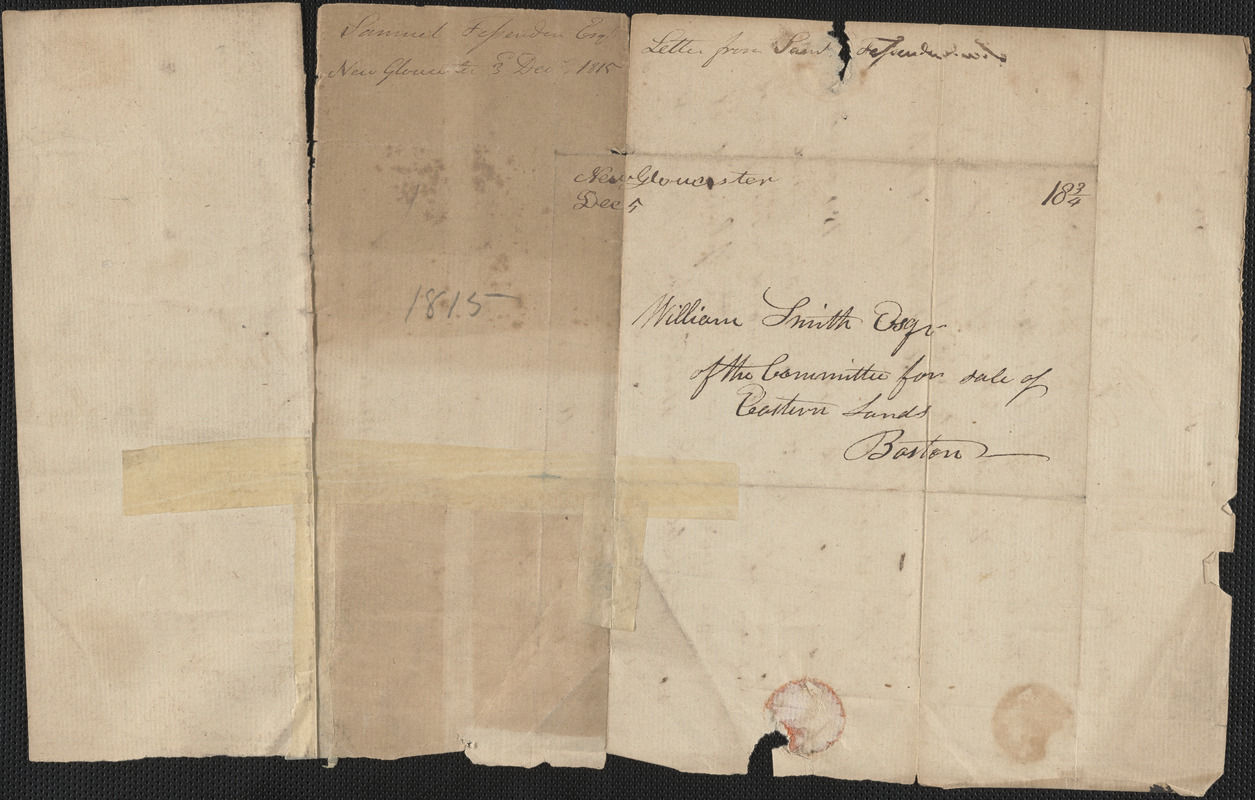 Samuel Fessenden Esqr
New Gloucester 3 Decr 1815
1815
Letter from Saml Fessenden
New Gloucester
Dec 5
18 3/4
William Smith Esqr
of the Committee for sale of
Eastern Lands
Boston